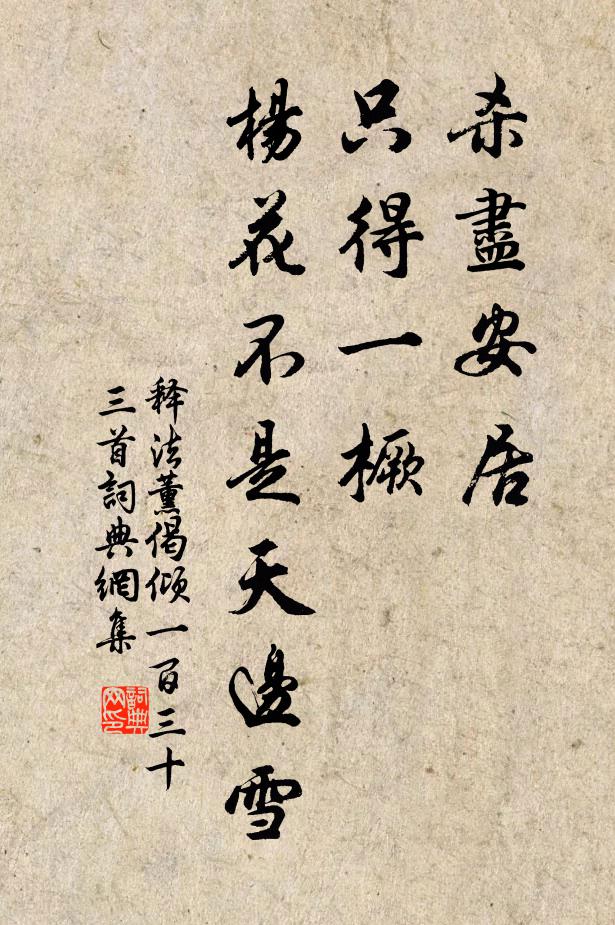 杀盡安居
只得一橛
楊花不是天邊雪
释法薰偈倾一百三十
三首詞典網集
詞典
网印